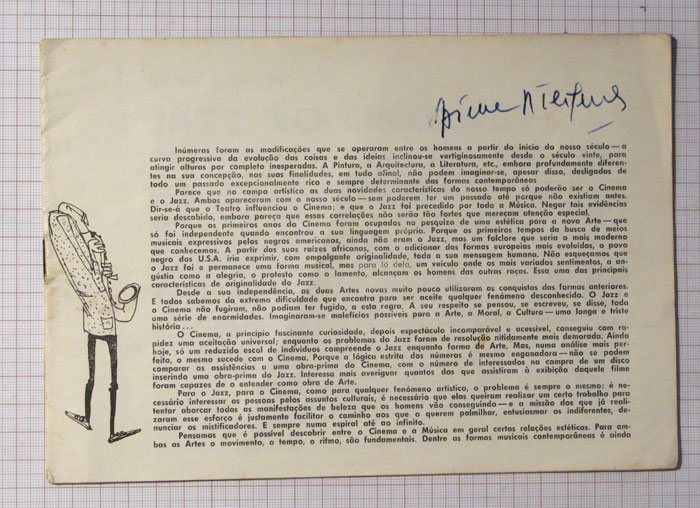 Inúmeros foram as modificações que se operaram entre os homens a partir do início do nosso século — a
curva progressiva da evolução das coisas e das ideias inclinou-se vertiginosamente desde o século vinte, para
atingir alturas por completo inesperadas. A Pintura, a Arquitectura, a Literatura, etc., embora profundamente diferen-
tes na sua concepção, nas suas finalidades, em tudo afinal, não podem imaginar-se, apesar disso, desligadas de
todo um passado excepcionalmente rico e sempre determinante das formas contemporâneas
Parece que no campo artístico as duas novidades características do nosso tempo só poderão ser o Cinema
e o Jazz. Ambas apareceram com o nosso século — sem poderem ter um passado até porque não existiam antes.
Dir-se-á que o Teatro influenciou o Cinema; e que o Jazz foi precedido por toda a Música. Negar tais evidências
seria descabido, embora pareça que essas correlações não serão tão fortes que mereçam atenção especial.
Porque os primeiros anos do Cinema foram ocupados na pesquiza de uma estética para a nova Arte — que
só foi independente quando encontrou a sua linguagem própria. Porque os primeiros tempos da busca de meios
musicais expressivos pelos negros americanos, ainda não eram o Jazz, mas um folclore que seria o mais moderno
que conhecemos. A partir das suas raízes africanas, com o adicionar das formas europeias mais evoluídas, o povo
negro dos U.S.A. iria exprimir, com empolgante originalidade, toda a sua mensagem humana. Não esqueçamos que
o Jazz foi e permanece uma forma musical, mas para lá dela, um veículo onde os mais variados sentimentos, a an-
gústia como a alegria, o protesto como o lamento, alcançam os homens das outras raças. Essa uma das principais
características de originalidade do Jazz.
Desde a sua independência, as duas Artes novas muito pouco utilizaram as conquistas das formas anteriores.
E todos sabemos da extrema dificuldade que encontra para ser aceite qualquer fenómeno desconhecido. O Jazz e
o Cinema não fugiram, não podiam ter fugido, a esta regra. A seu respeito se pensou, se escreveu, se disse, toda
uma série de enormidades. Imaginaram-se malefícios possíveis para a Arte, a Moral, a Cultura — uma longa e triste
história . . .
O Cinema, a princípio fascinante curiosidade, depois espectáculo incomparável e acessível, conseguiu com ra-
pidez uma aceitação universal; enquanto os problemas do Jazz foram de resolução nitidamente mais demorada. Ainda
hoje, só um reduzido escol de indivíduos compreende o Jazz enquanto forma de Arte. Mas, numa análise mais per-
feita, o mesmo sucede com o Cinema. Porque a lógica estrita dos números é mesmo enganadora — não se podem
comparar as assistências a uma obra-prima do Cinema, com o número de interessados na compra de um disco
inserindo uma obra-prima do Jazz. Interessa mais averiguar quantos dos que assistiram à exibição daquele filme
foram capazes de o entender como obra de Arte.
Para o Jazz, para o Cinema, como para qualquer fenómeno artístico, o problema é sempre o mesmo: é ne-
cessário interessar as pessoas pelos assuntos culturais, é necessário que elas queiram realizar um certo trabalho para
tentar abarcar todas as manifestações de beleza que os homens vão conseguindo — e a missão dos que já reali-
zaram esse esforço é justamente facilitar o caminho aos que o querem palmilhar, entusiasmar os indiferentes, de-
nunciar os mistificadores. E sempre numa espiral até ao infinito.
Pensamos que é possível descobrir entre o Cinema e a Música em geral certas relações estéticas. Para am-
bas as Artes o movimento, o tempo, o ritmo, são fundamentais. Dentre as formas musicais contemporâneas é ainda